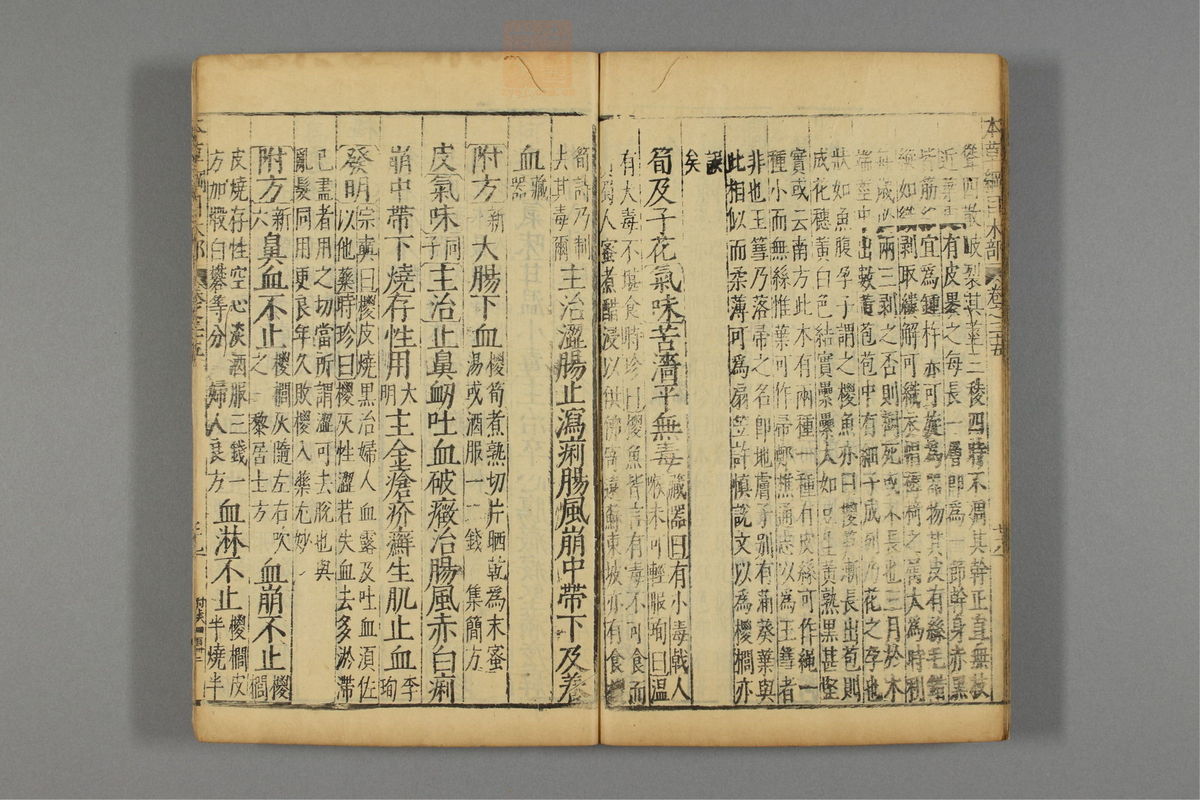 本草綱目木部 卷之三十五
聳而散歧裂其莖三稜四時不凋其幹正直無枝
近葉處有皮裹之每長一層即為一節幹身赤黑
皆筋絡宜為鍾杵亦可旋為器物其皮有絲毛錯
縱如織剝取縷解可織衣帽褥椅之屬大為時利
每歲必兩三剝之否則樹死或不長也三月於木
端莖中出數黃苞苞中有細子成列乃花之孕也
狀如魚腹孕子謂之椶魚亦曰椶筍漸長出苞則
成花穗黃白色結實纍纍大如豆生黃熟黑甚堅
實或云南方此木有兩種一種有皮絲可作繩一
種小而無絲惟葉可作帚鄭樵通志以為王篲者
非也王篲乃落帚之名即地膚子別有蒲葵葉與
此相似而柔薄可為扇笠許慎說文以為椶櫚亦
誤矣
筍及子花氣味苦濇平無毒藏器曰有小毒戟人喉未可輕服珣曰溫
有大毒不堪食時珍曰椶魚皆言有毒不可食而
蜀人蜜煮醋浸以供佛寄遠蘇東坡亦有食椶
筍詩乃制去其毒爾主治澀腸止瀉痢腸風崩中帶下及養
血藏器
附方新一大腸下血椶筍煮熟切片晒乾為末蜜湯或酒服一二錢集簡方
皮氣味同子主治止鼻衄吐血破癥治腸風赤白痢
崩中帶下燒存性用大明主金瘡疥癬生肌止血李珣
發明宗奭曰椶皮燒黑治婦人血露及吐血須佐
以他藥時珍曰椶灰性澀若失血去多瘀滯
已盡者用之切當所謂澀可去脫也與
亂髮同用更良年久敗椶入藥尤妙
附方新六鼻血不止椶櫚灰隨左右吹之黎居士方血崩不止椶櫚
皮燒存性空心淡酒服三錢一方加煆白礬等分婦人良方血淋不止椶櫚皮半燒半